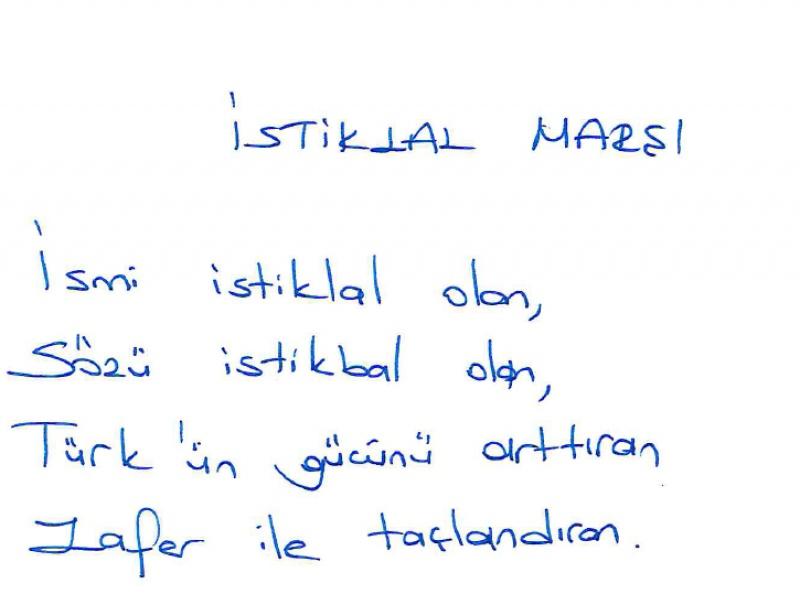 İSTİKLAL MARŞI
İsmi istiklal olan,
Sözü istikbal olan,
Türk'ün gücünü arttıran
Zafer ile taçlandıran.